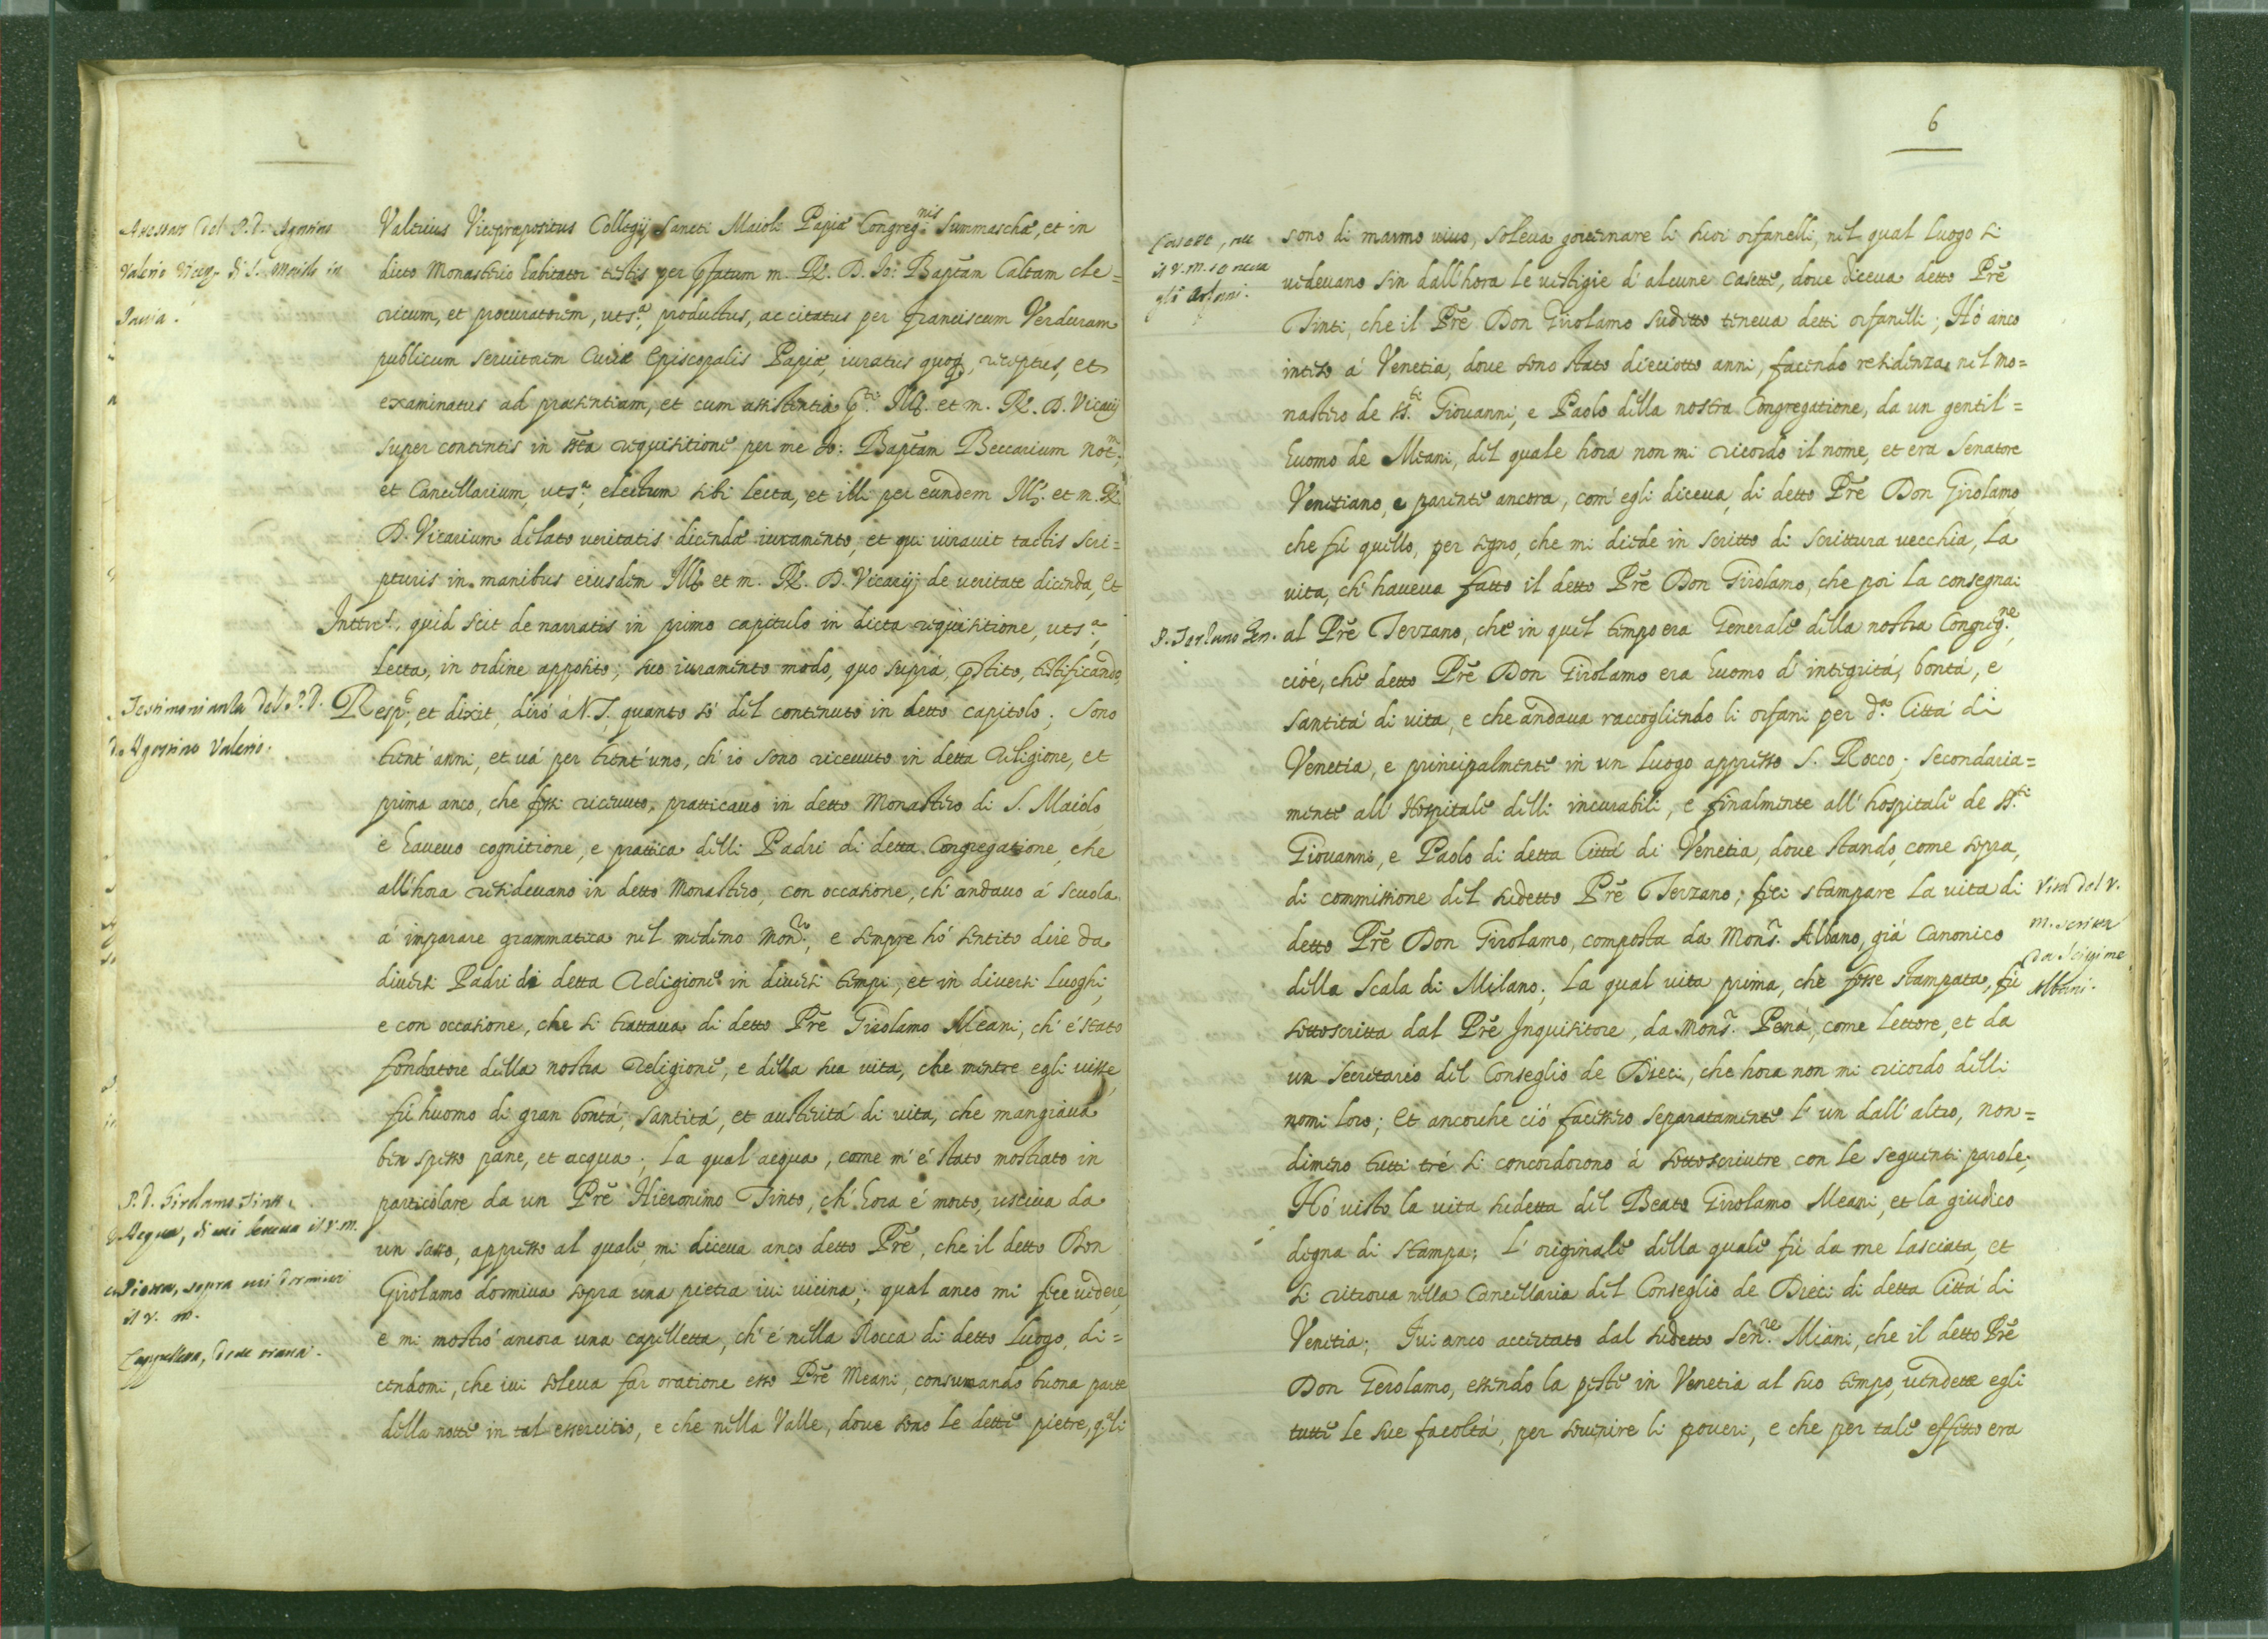 Valerius Vicepræpositus Collegij Sancti Maioli Papiæ Congreg.nis Summaschæ, et in
dicto Monasterio habitator testis per p̃fatum m. R. D. Jo: Bap̃tam Caltam cle=
ricum, et procuratorem, uts.ª, productus, ac citatus per Franciscum Verduram
publicum seruitorem Curiæ Episcopalis Papiæ, iuratus quoq, receptus, et
examinatus ad præsentiam, et cum assistentia p.ti Ill. et m. R. D. Vicarij
super contentis in s̃ta requisitione per me Jo: Bap̃tam Beccarium Not.m,
et Cancellarium, uts.ª, electum sibi lecta, et illi per eundem Ill. et m. R.
D. Vicarium delato ueritatis dicendæ iuramento, et qui iurauit tactis scri=
pturis in manibus eiusdem Ill. et m. R. D. Vicarij de ueritate dicenda, Et
Interr.s, quid scit de narratis in primo capitulo in dicta requisitione, uts.ª,
lecta, in ordine apposito, suo iuramento modo, quo suprà, p̃stito, testificando,
Resp.t, et dixit, dirò à N. S. quanto sò del contenuto in detto capitolo; Sono
trent'anni, et uà per trent'uno, ch'io sono riceuuto in detta Religione, et
prima anco, che fossi riceuuto, pratticauo in detto Monastero di S. Maiolo
e haueuo cognitione, e prattica delli Padri di detta Congregatione, che
all'hora residevano in detto Monastero, con occasione, ch'andauo à scuola
à imparare grammatica nel medemo Mon.ro, e sempre hò sentito dire da
diuersi Padri di detta Religione in diuersi tempi, et in diuersi luoghi,
e con occasione, che si trattaua di detto Prẽ Girolamo Meani, ch'è stato
fondatore della nostra Religione, e della sua uita, che mentre egli uisse,
fù huomo di gran bontà, santità, et austerità di uita, che mangiaua
ben spesso pane, et acqua; la qual'acqua, come m'è stato mostrato in
particolare da un Prẽ Hieronimo Tinto, ch'hora è morto, usciua da
un sasso, appresso al quale, mi diceua anco detto Prẽ, che il detto Don
Girolamo dormiua sopra una pietra iui uicina; qual anco mi fece uedere,
e mi mostrò ancora una capelletta, ch'è nella Rocca di detto luogo, di=
cendomi, che iui soleua far oratione esso Prẽ Meani, consumando buona parte
della notte in tal essercitio, e che nella Valle, doue sono le dette pietre, q.li
Valerio Vicep. di S. Maiolo in
Pauia.
Testimonianza del P. D.
Agostino Valerio.
P. D. Girolamo Tinto.
Acqua, di cui beueua il V. M.
Pietra, sopra cui dormiua
il V. M.
Cappelletta, doue oraua.
6
sono di marmo uiuo, soleua gouernare li suoi orfanelli, nel qual luogo si
uedeuano sin dall'hora le uestigie d'alcune casette, doue diceua detto Prẽ
Tinti, che il Prẽ Don Girolamo sudetto teneua detti orfanelli; Hò anco
inteso à Venetia, doue sono stato dieciotto anni, facendo residenza nel mo=
nastero de SS.ti Giouanni, e Paolo della nostra Congregatione, da un gentil'=
huomo de Meani, del quale hora non mi ricordo il nome, et era Senatore
Venetiano, e parente ancora, com'egli diceua, di detto Prẽ Don Girolamo,
che fù quello, per segno, che mi diede in scritto di scrittura uecchia, la
uita, ch'haueua fatto il detto Prẽ Don Girolamo, che poi la consegnai
al Prẽ Terzano, che in quel tempo era Generale della nostra Congreg.ne,
cioè, che detto Prẽ Don Girolamo era huomo d'integrità, bontà, e
santità di uita, e che andaua raccogliendo li orfani per d.ª Città di
Venetia, e principalmente in un luogo appresso S. Rocco; secondaria=
mente all'Hospitale delli incurabili, e finalmente all'hospitale de SS.ti
Giouanni, e Paolo di detta Città di Venetia, doue stando, come sopra,
di commissione del sudetto Prẽ Terzano, feci stampare la uita di
detto Prẽ Don Girolamo, composta da Mons.r Albano, già Canonico
della Scala di Milano; la qual uita prima, che fosse stampata, fù
sottoscritta dal Prẽ Inquisitore, da Mons.r Penà, come lettore, et da
un Secretario del Conseglio de Dieci, che hora non mi ricordo delli
nomi loro; Et ancorche ciò facessero separatamente l'un dall'altro, non=
dimeno tutti trè si concordorono à sottoscriuere con le seguenti parole;
Hò uisto la uita sudetta del Beato Girolamo Meani, et la giudico
degna di stampa; L'originale della quale fù da me lasciata, et
si ritroua nella Cancellaria del Conseglio de Dieci di detta Città di
Venetia; Fui anco accertato dal sudetto Sen.re Miani, che il detto Prẽ
Don Gerolamo, essendo la peste in Venetia al suo tempo, uendette egli
tutte le sue facoltà, per souenire li poueri, e che per tale effetto era
il V. M.
P. Terzano Gen.
Vita del V.
M. scritta
da Scipione
Albani.